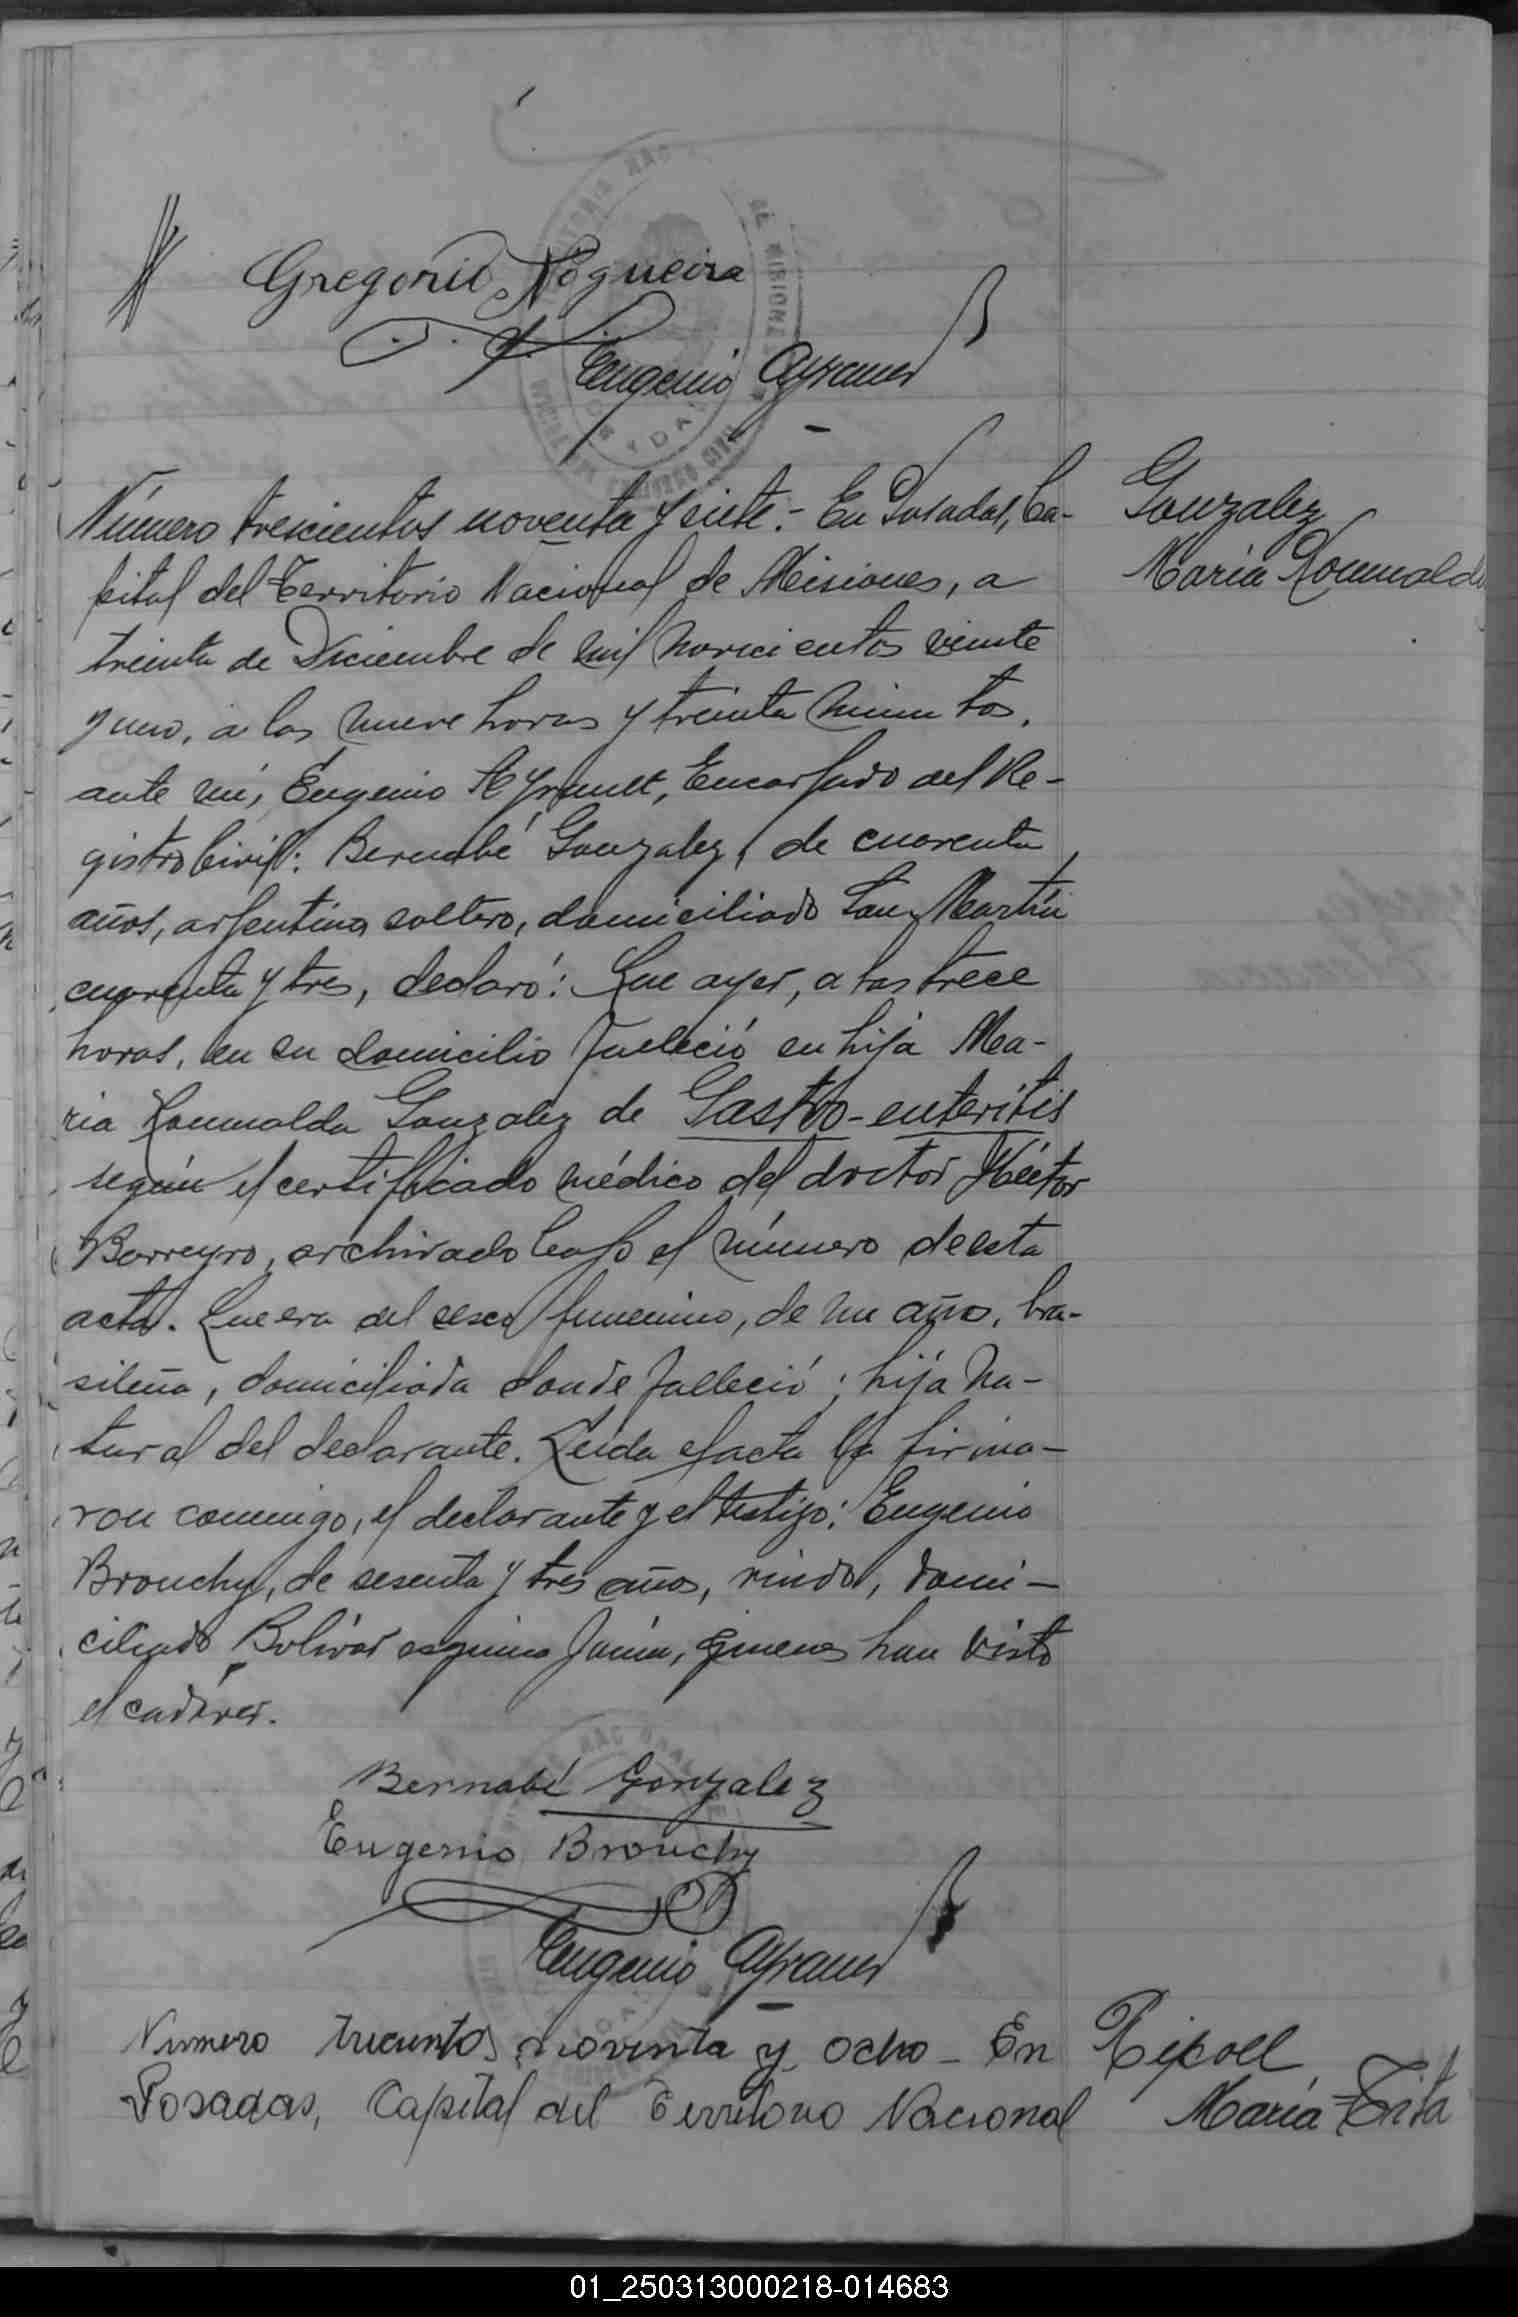 Gregorio Nogueira
Eugenio Ayrault
Número trescientos noventa y siete.- En Posadas, Ca-
pital del Territorio Nacional de Misiones, a
treinta de Diciembre de mil novecientos veinte
y uno, a las nueve horas y treinta minutos,
ante mí, Eugenio Ayrault, Encargado del Re-
gistro Civil: Bernabé Gonzalez, de cuarenta
años, argentino, soltero, domiciliado San Martín
cuarenta y tres, declaró: Que ayer, a las trece
horas, en su domicilio falleció su hija Ma-
ria Romualda Gonzalez de Gastro-enteritis
según el certificado médico del doctor Héctor
Barreyro, archivado bajo el número de esta
acta. Que era del sexo femenino, de un año, bra-
sileña, domiciliada donde falleció; hija na-
tural del declarante. Leida el acta la firma-
ron conmigo, el declarante y el testigo: Eugenio
Brouchy, de sesenta y tres años, viudo, domi-
ciliado Bolívar esquina Junín, quienes han visto
el cadáver.
Bernabé Gonzalez
Eugenio Brouchy
Eugenio Ayrault
Numero trecientos noventa y ocho - En
Posadas, Capital del Territorio Nacional
Gonzalez
María Romualda
Ripoll
María Tita
01_250313000218-014683